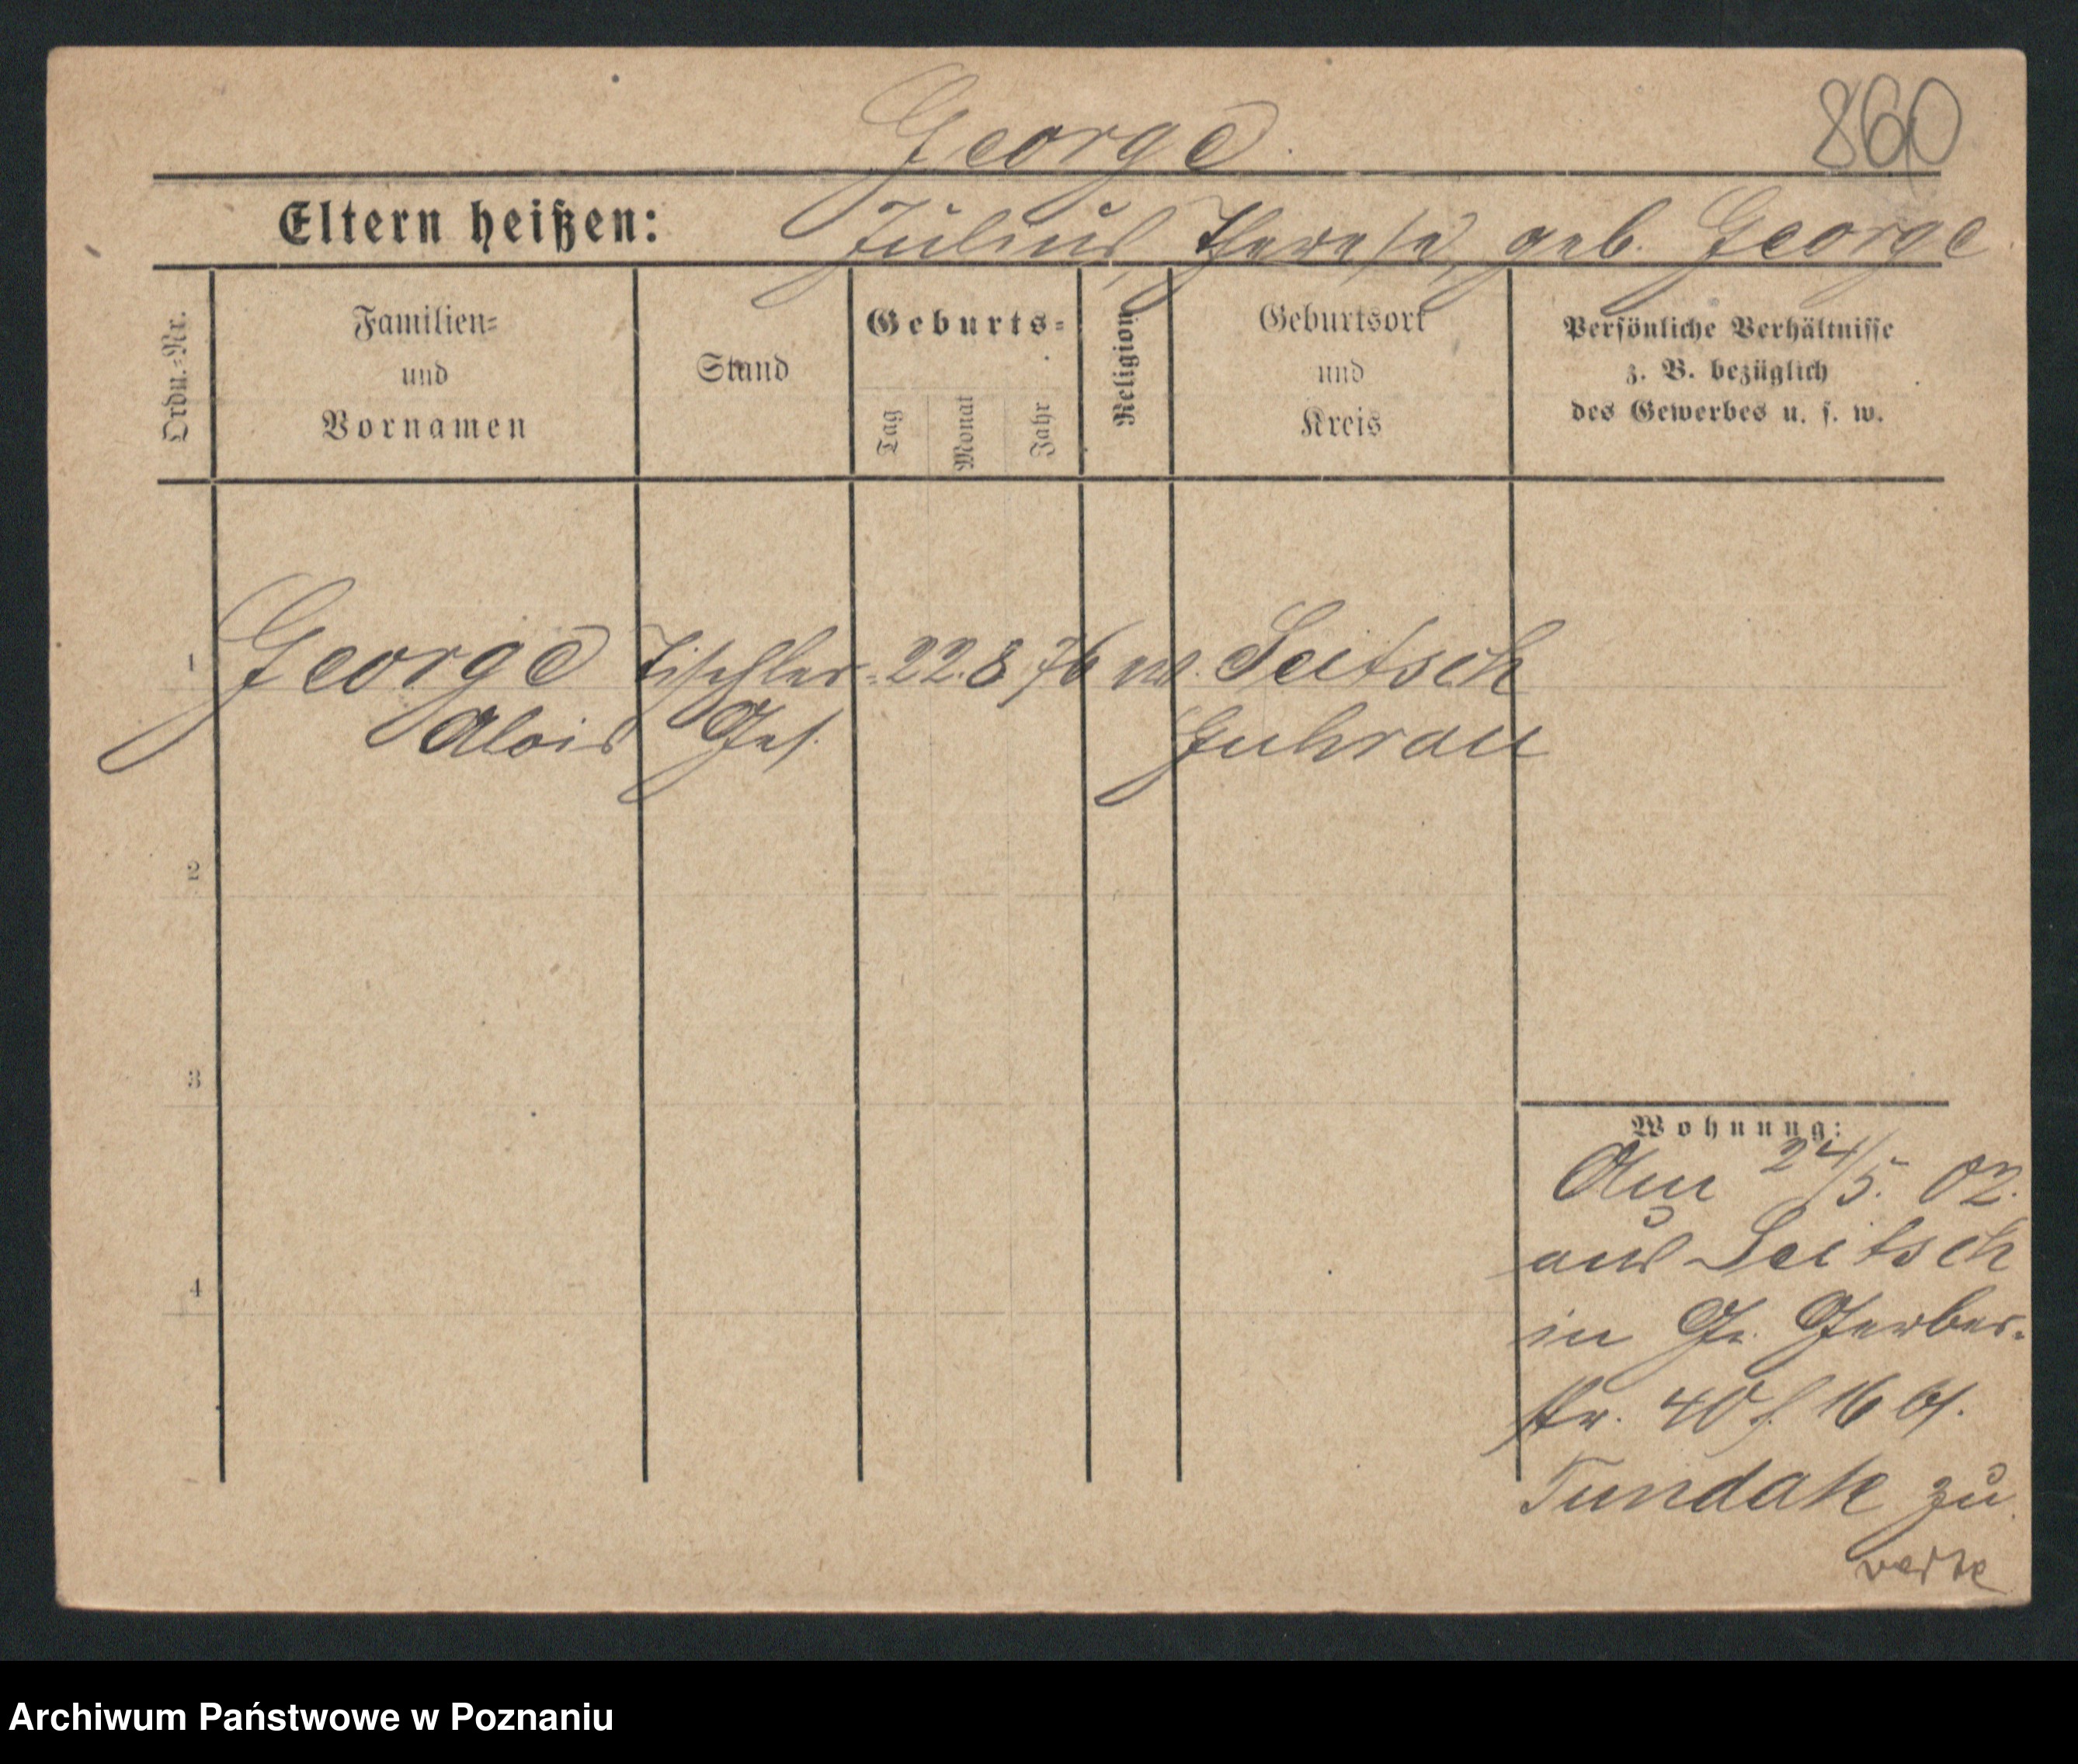 George.
860
Eltern heißen: Julius, Therese, geb. George
Ordn.-Nr.
Familien-
und
Vornamen
Stand
Geburts-
Tag
Monat
Jahr
Religion
Geburtsort
und
Kreis
Persönliche Verhältnisse
z. B. bezüglich
des Gewerbes u. s. w.
1 George Tischler- 22. 8 76 Seitsch
Alois Ges. Guhrau
2
3
4
Wohnung:
Am 24/5. 02.
aus Seitsch
in Gr. Gerber-
str. 40
Tundak zu
Archiwum Państwowe w Poznaniu